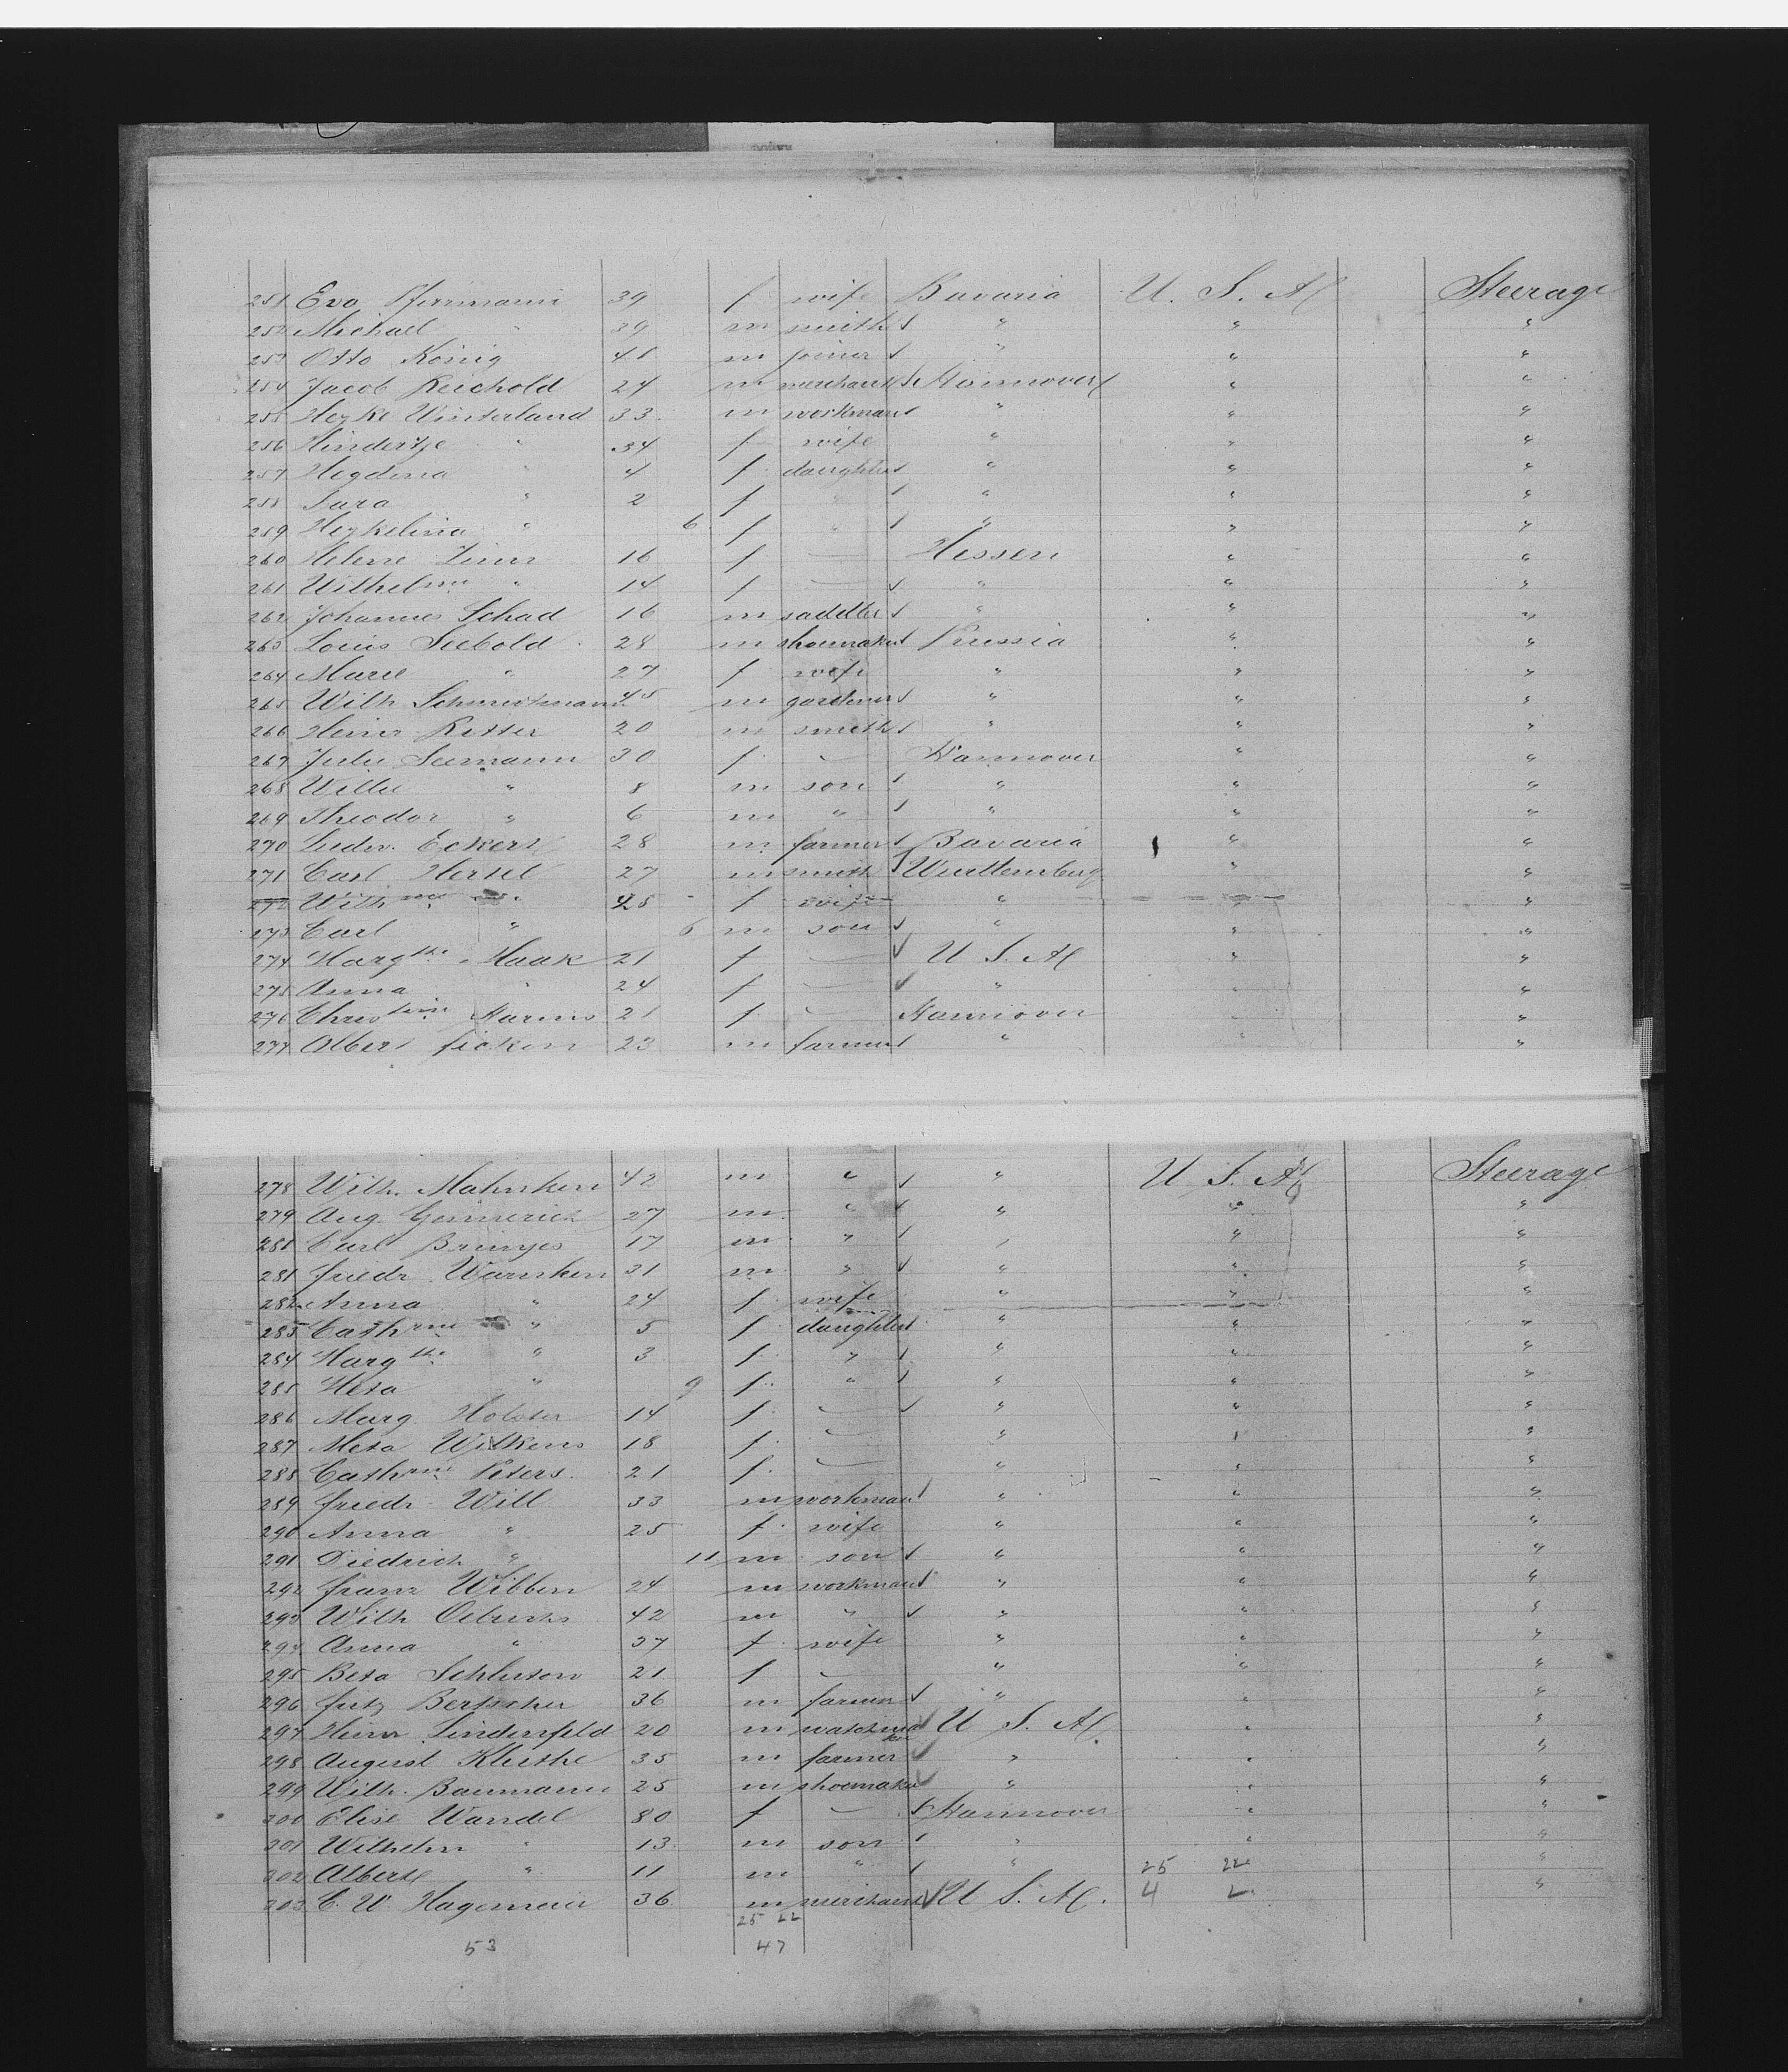 251 Eva Herrmann 39 f wife Bavaria U. S. A. Steerage
252 Michael " 39 m smith " " "
253 Otto König 41 m joiner " " "
254 Jacob Reichold 24 m merchant Hannover " "
255 Heyke Winterland 33 m workman " " "
256 Hindertje " 34 f wife " " "
257 Hegdena " 4 f daughter " " "
258 Sara " 2 f " " " "
259 Heykelina " 6 f " " " "
260 Helene Zinn 16 f — Hessen " "
261 Wilhelmn " 14 f — " " "
262 Johannes Schad 16 m saddler " " "
263 Louis Seebold 28 m shoemaker Prussia " "
264 Marie " 27 f wife " " "
265 Wilh 45 m gardener " " "
266 Heinr Ritter 20 m smith " " "
267 Julie Seemann 30 f — Hannover " "
268 Willie " 8 m son " " "
269 Theodor " 6 m " " " "
270 Eckert 28 m farmer Bavaria " "
271 Carl Hertel 27 m smith Württemberg " "
272 Wilhne " 28 f wife " " "
273 Carl " 6 m son " " "
274 Margthe Maak 21 f — U S. A. " "
275 Anna " 24 f — " " "
276 Christine 21 f — Hannover " "
277 Albert ficken 23 m farmer " " "
278 Wilh. Mahnken 42 m " " U S. A. Steerage
279 Aug. 27 m " " " "
281 Carl Brinjes 17 m " " " "
281 friedr Warnken 31 m " " " "
282 Anna " 24 f wife " " "
283 Cathrine " 5 f daughter " " "
284 Margthe " 3 f " " " "
285 Meta " 9 f " " " "
286 Marg Holster 14 f — " " "
287 Meta Wilkens 18 f — " " "
288 Cathrine Peters 21 f — " " "
289 friedr Will 33 m workman " " "
290 Anna " 25 f wife " " "
291 Diedrich " 11 m son " " "
292 franz Wibben 24 m workman " " "
293 Wilh Oelrichs 42 m " " " "
294 Anna " 37 f wife " " "
295 Beta 21 f — " " "
296 fritz 36 m farmer " " "
297 Heinr Lindenfeld 20 m U S. A. " "
298 August Kluthe 35 m farmer " " "
299 Wilh. Baumann 25 m shoemaker " " "
300 Elise Wandel 80 f — Hannover " "
301 Wilhelm " 13 m son " " "
302 Albert " 11 m " " 25 22 "
303 C. W. Hagemeier 36 m merchant U S. A. 4 "
25 22
53 47